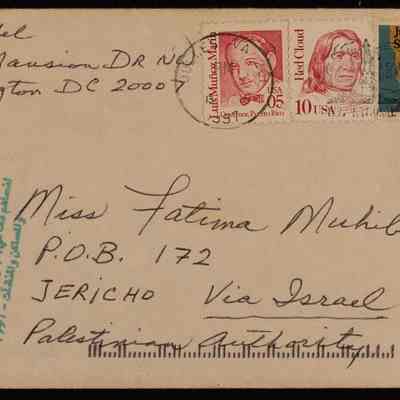 del
Mansion DR NW
gton DC 20007
Luis Muñoz Marín
USA
05
Governor, Puerto Rico
Red Cloud
10USA
Miss Fatima Muhib
P.O.B. 172
JERICHO Via Israel
Palestinian Authority